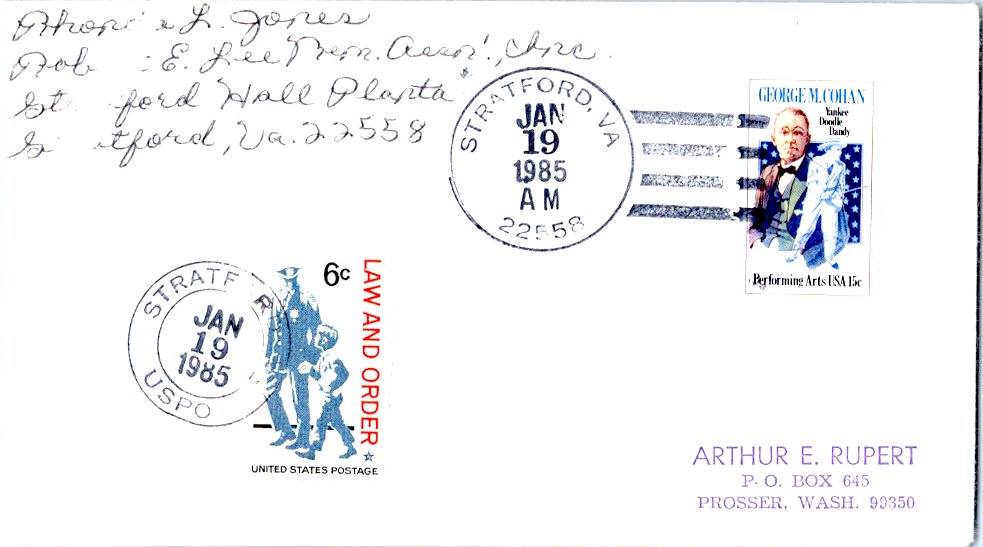 L. Jones
E. Lee Mem. Assn., Inc.
ford Hall Planta
tford, Va. 22558
STRATFORD, VA
JAN
19
1985
AM
22558
GEORGE M. COHAN
Yankee
Doodle
Dandy
Performing Arts USA 15c
STRATF R
JAN
19
1985
USPO
6c
LAW AND ORDER
UNITED STATES POSTAGE
ARTHUR E. RUPERT
P. O. BOX 645
PROSSER, WASH. 99350